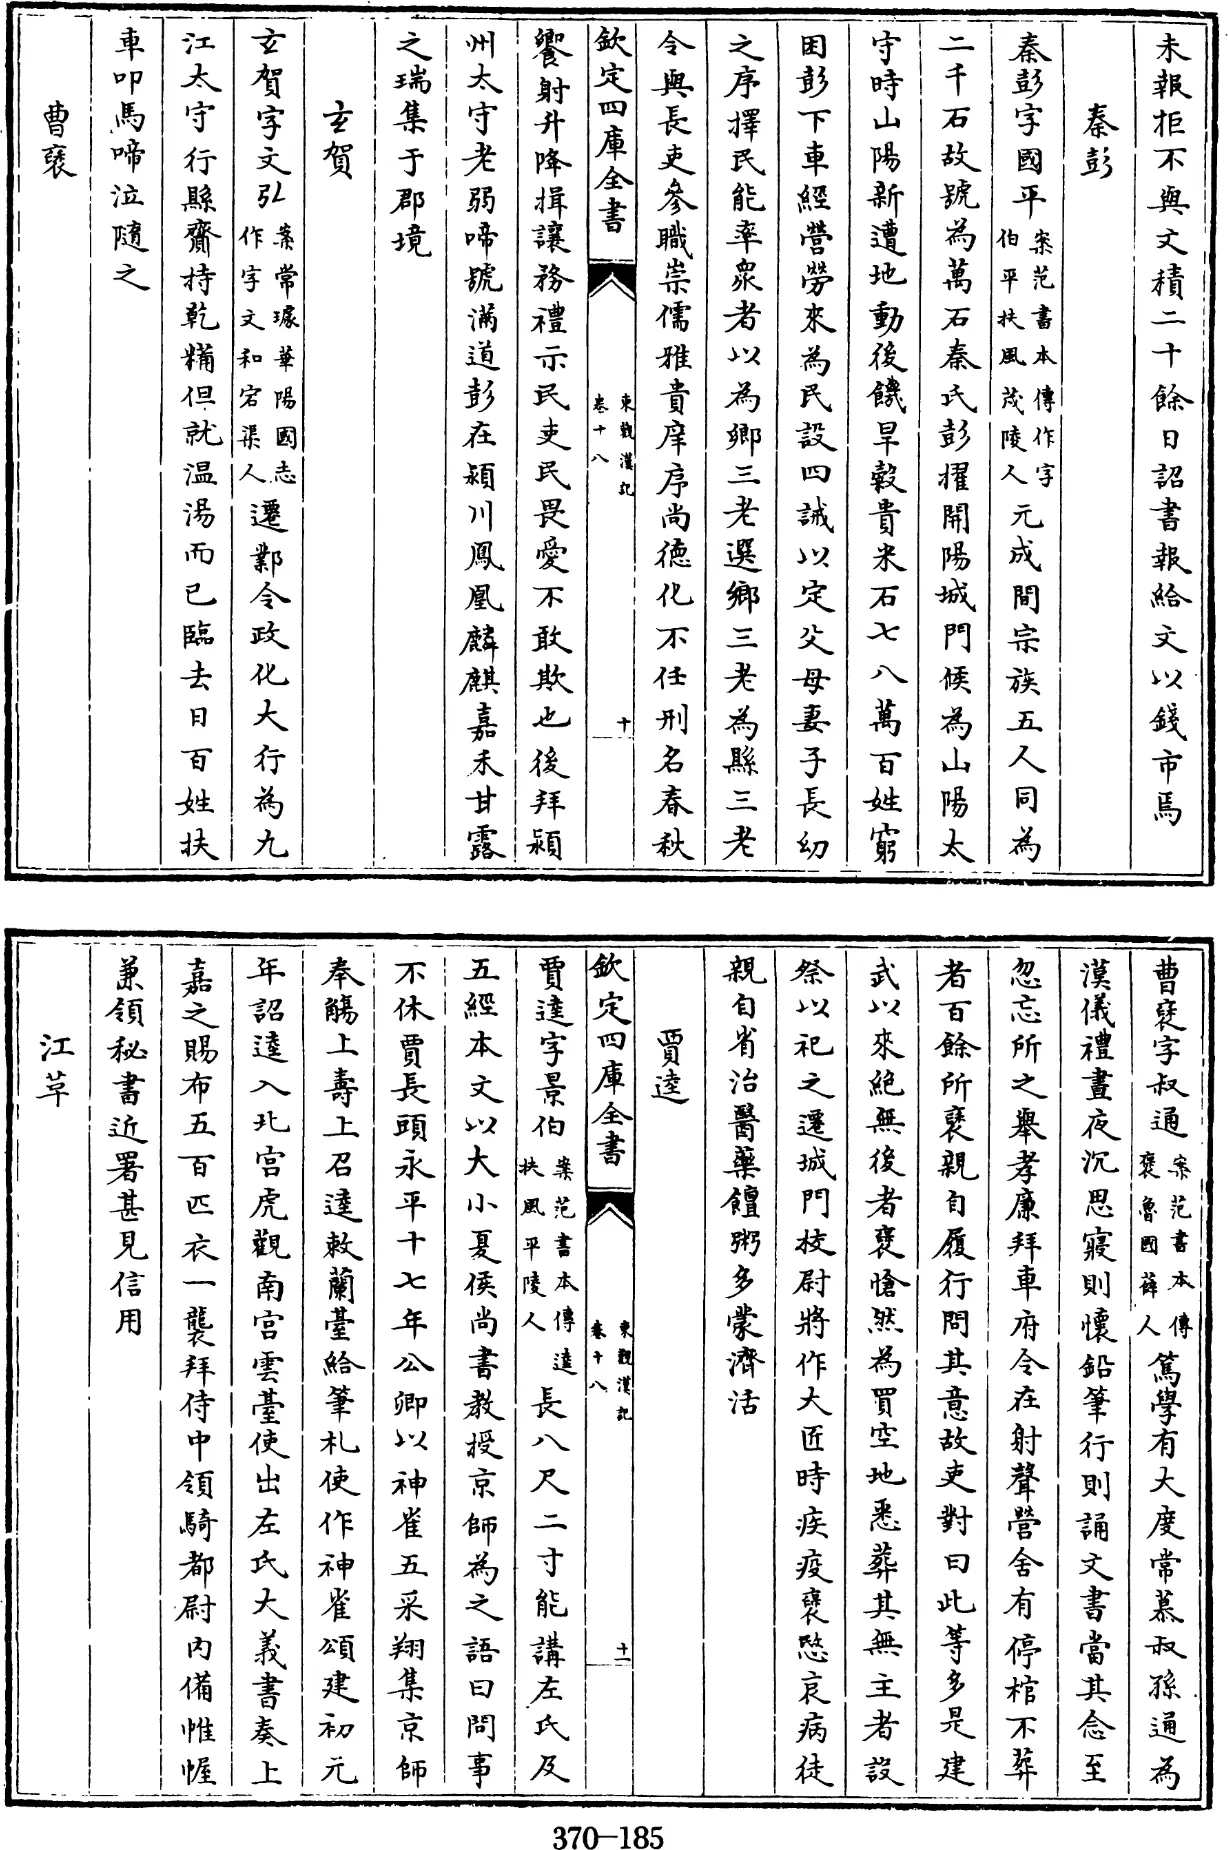 未報拒不與文積二十餘日詔書報給文以錢市焉
秦彭
秦彭字國平案范書本傳作字伯平扶風茂陵人元成間宗族五人同為
二千石故號為萬石秦氏彭擢開陽城門候為山陽太
守時山陽新遭地動後饑旱穀貴米石七八萬百姓窮
困彭下車經營勞來為民設四誡以定父母妻子長幼
之序擇民能率衆者以為鄉三老選鄉三老為縣三老
令與長吏參職崇儒雅貴庠序尚德化不任刑名春秋
欽定四庫全書
東觀漢記
卷十八
十
饗射升降揖讓務禮示民吏民畏愛不敢欺也後拜潁
州太守老弱啼號滿道彭在潁川鳳凰麟麒嘉禾甘露
之瑞集于郡境
玄賀
玄賀字文弘案常璩華陽國志作字文和宕渠人遷鄴令政化大行為九
江太守行縣齎持乾糒但就温湯而已臨去日百姓扶
車叩馬啼泣隨之
曹襃
曹襃字叔通案范書本傳襃魯國薛人篤學有大度常慕叔孫通為
漢儀禮晝夜沉思寢則懷鉛筆行則誦文書當其念至
忽忘所之舉孝廉拜車府令在射聲營舍有停棺不葬
者百餘所襃親自履行問其意故吏對曰此等多是建
武以來絶無後者襃愴然為買空地悉葬其無主者設
祭以祀之遷城門校尉將作大匠時疾疫襃愍哀病徒
親自省治醫藥饘粥多蒙濟活
賈逵
欽定四庫全書
東觀漢記
卷十八
十一
賈逵字景伯案范書本傳逵扶風平陵人長八尺二寸能講左氏及
五經本文以大小夏侯尚書教授京師為之語曰問事
不休賈長頭永平十七年公卿以神雀五采翔集京師
奉觴上壽上召逵敕蘭臺給筆札使作神雀頌建初元
年詔逵入北宫虎觀南宫雲臺使出左氏大義書奏上
嘉之賜布五百匹衣一襲拜侍中領騎都尉内備帷幄
兼領秘書近署甚見信用
江革
370-185